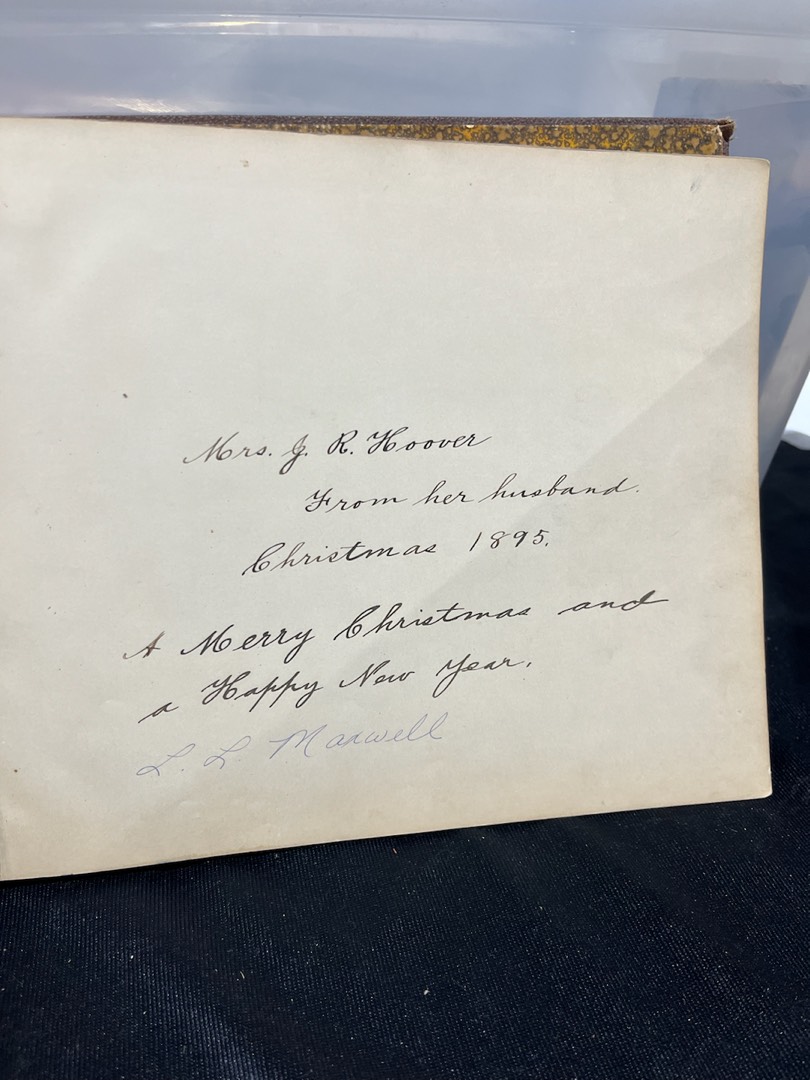 Mrs. J. R. Hoover
From her husband.
Christmas 1895.
A Merry Christmas and
a Happy New Year.
L. L. Maxwell